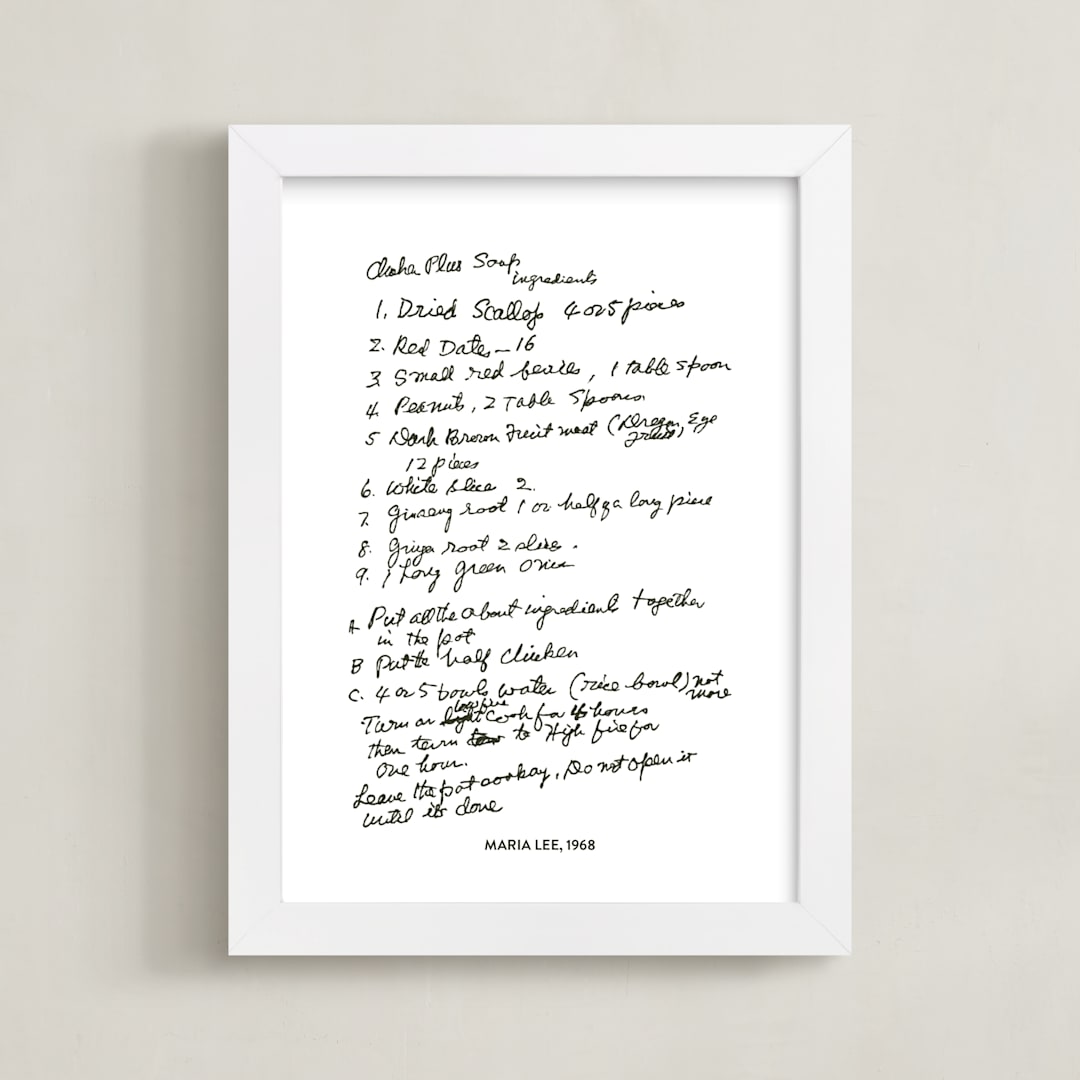 Plus Soap
ingredients
1. Dried Scallop 4 or 5 pieces
2. Red Dates - 16
3 Small red berries, 1 table spoon
4 Peanuts, 2 Table Spoons
5 Dark Brown Fruit meat (Dragon, Eye
Fruit)
12 pieces
6. White slice 2.
7. Ginseng root 1 or half of a long piece
8. root 2 slice.
9. 1 Long green
A Put all the about ingredients together
in the pot
B Put the half chicken
C. 4 or 5 bowls water (rice bowl) not
more
low fire
Turn on Cook for hours
then turn to High fire for
One hour.
Leave the pot, Do not open it
until its done
MARIA LEE, 1968